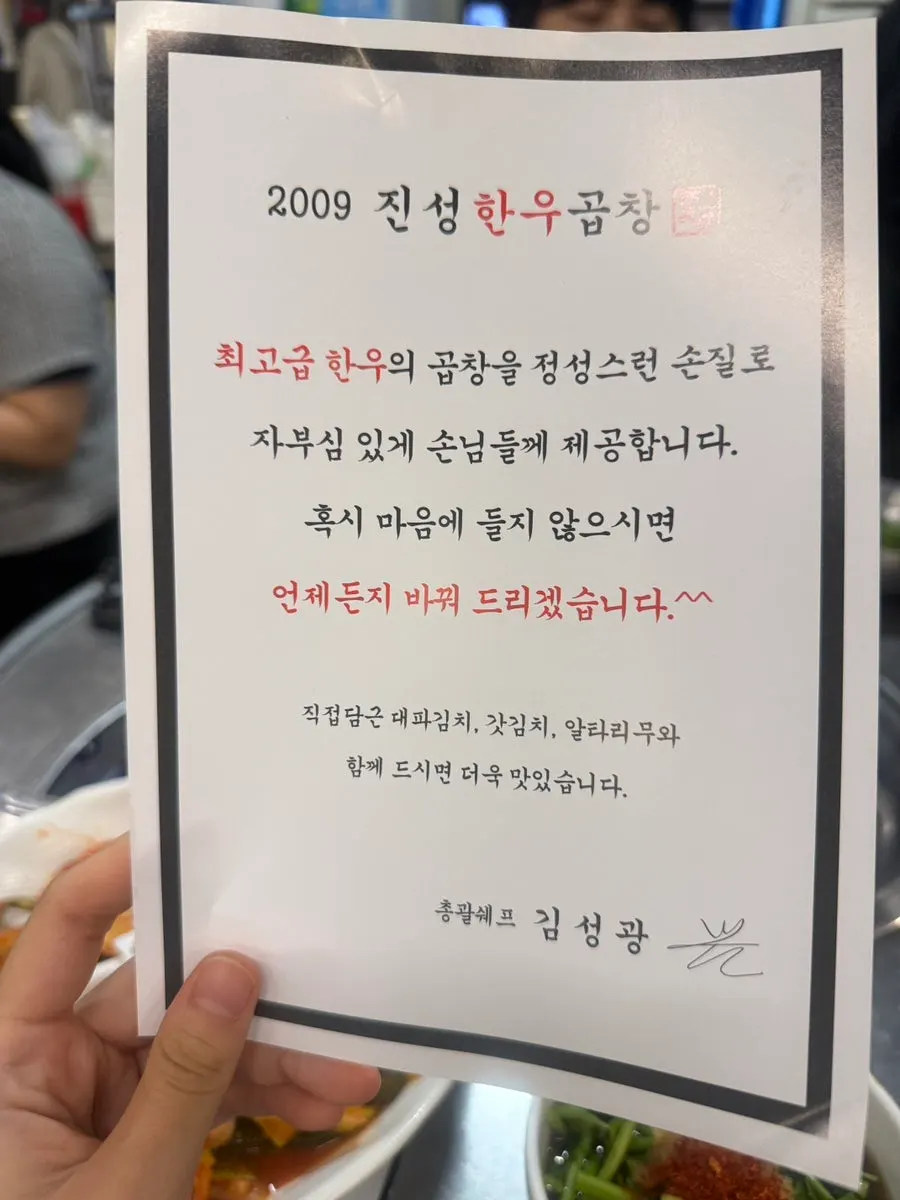 2009 진성한우곱창
최고급 한우의 곱창을 정성스런 손질로
자부심 있게 손님들께 제공합니다.
혹시 마음에 들지 않으시면
언제든지 바꿔 드리겠습니다.^^
직접담근 대파김치, 갓김치, 알타리무와
함께 드시면 더욱 맛있습니다.
총괄쉐프 김성광